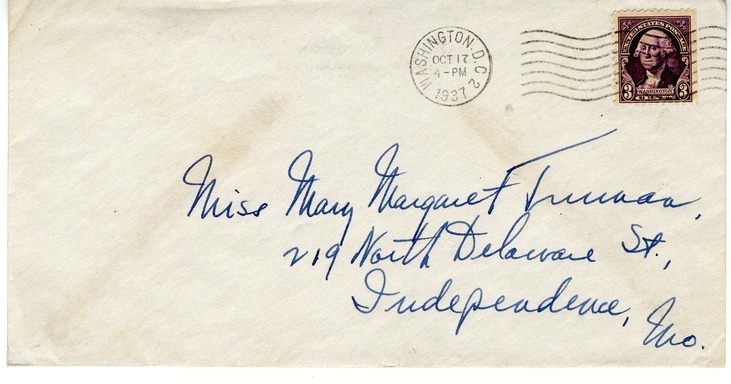 WASHINGTON, D.C. 2
OCT 17
4-PM
1937
UNITED STATES POSTAGE
WASHINGTON
3 CENTS 3
Miss Mary Margaret Truman,
219 North Delaware St.,
Independence,
Mo.